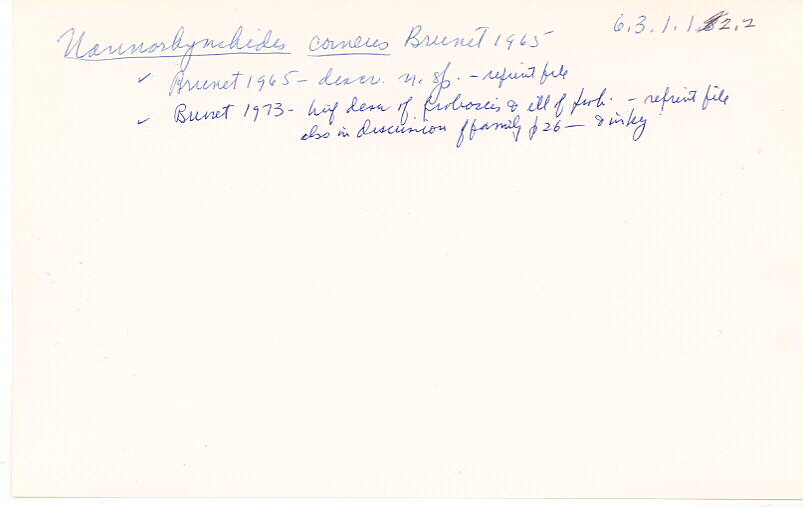 Nannorhynchides corneus Brunet 1965 6.3.1.1.2.2
✓ Brunet 1965 – descr. n. sp. – reprint file
✓ Brunet 1973 – brief descr of proboscis & ill of prob. – reprint file
also in discussion of family p 26 — & in key